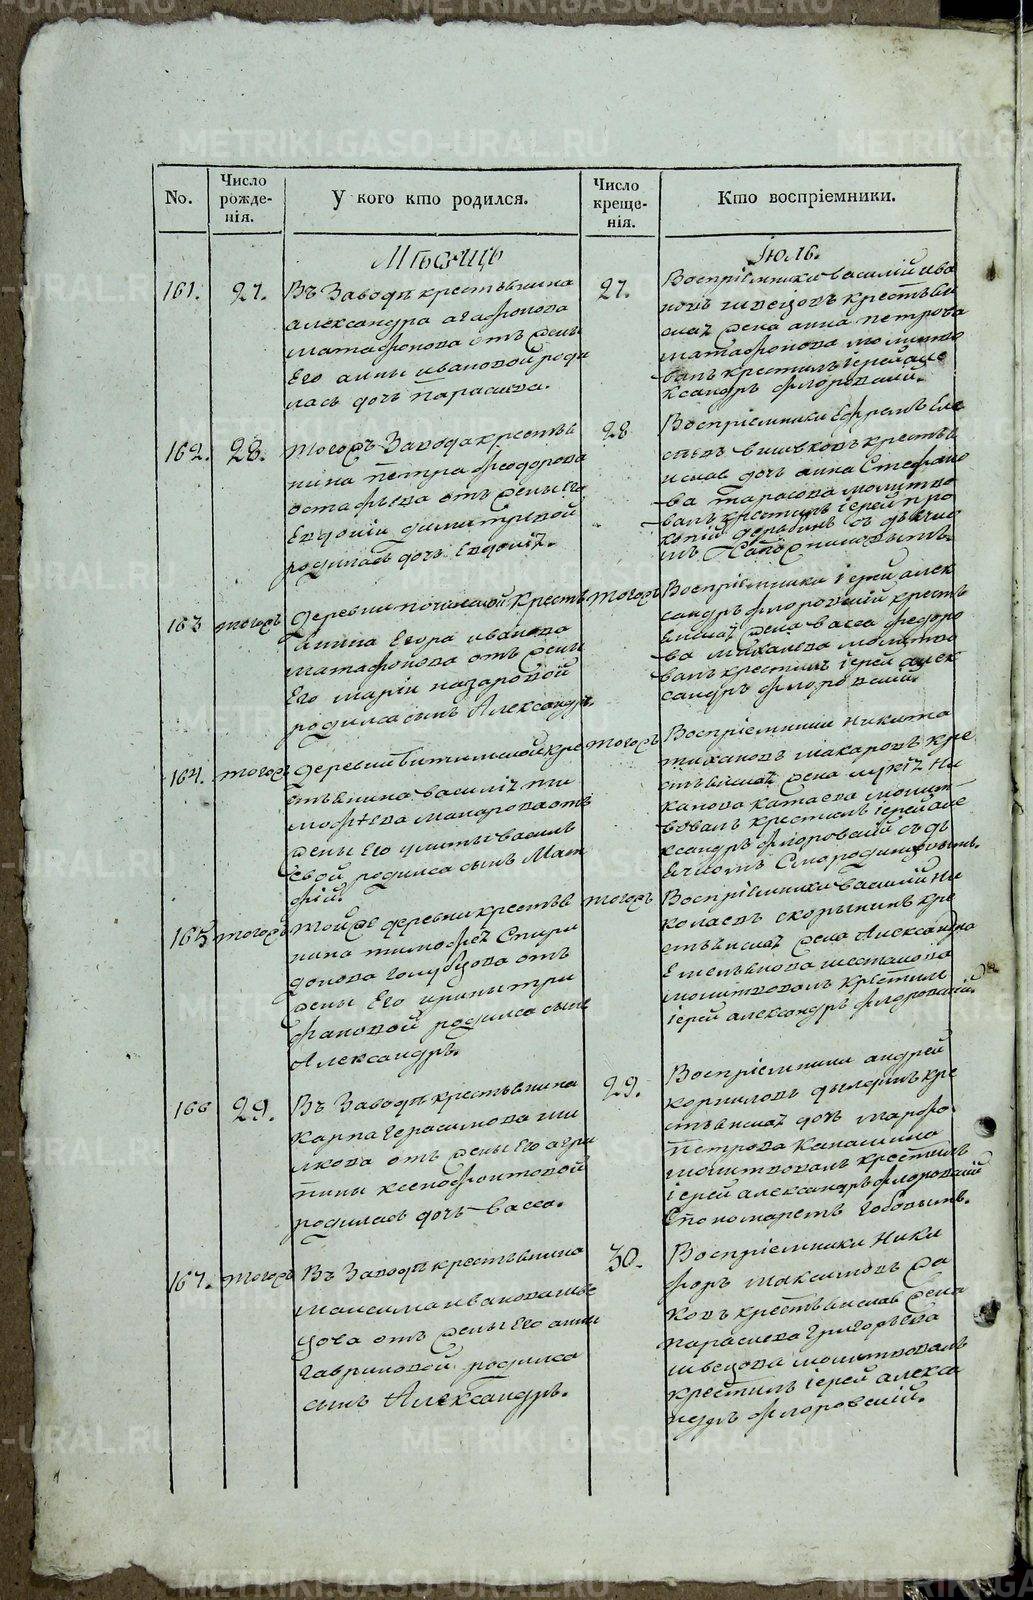 No.
Число рожде-нія.
У кого кто родился.
Число креще-нія.
Кто воспріемники.
Мѣсяцъ
Іюль.
161.
27.
Въ Заводѣ крестьянина
александра агафонова
матафонова отъ жены
Его анны ивановой роди
лась дочь Параскева.
27.
Воспріемники василій ива
новъ швецовъ крестьян
ская жена анна петрова
матафонова молитво
валъ крестилъ іерей але
ксандръ флоровскій.
162.
28.
тогожъ Завода крестья
нина петра феодорова
остафьева отъ жены его
Евдокіи димитріевой
родилась дочь Евдокія.
28
Воспріемники Ефремъ
крестьян
ская дочь анна Стефано
ва тарасова молитво
валъ крестилъ іерей про
копій съ дьячко
мъ
163
тогожъ
Деревни крестья
нина Егора иванова
матафонова отъ жены
Его маріи назаровой
родился сынъ Александръ.
тогожъ
Воспріемники іерей алек
сандръ флоровскій кресть
янская жена васса федоро
ва михалева молитво
валъ крестилъ іерей алек
сандръ флоровскій.
164.
тогожъ
Деревни Битимской кре
стьянина василія ти
мофѣева макарова отъ
жены Его улиты василь
евой родился сынъ Мат
фій.
тогожъ
Воспріемники никита
макаровъ кре
стьянская жена
катаева молит
вовалъ крестилъ іерей але
ксандръ флоровскій съ дь
ячкомъ Смородинцовымъ.
165
тогожъ
тойже деревни крестья
нина тимофея Спири
донова голубцова отъ
жены Его ирины три
фановой родился сынъ
Александръ.
тогожъ
Воспріемники василій ни
колаевъ скорынинъ кре
стьянская жена Александра
Емельянова шестакова
молитвовалъ крестилъ
іерей александръ флоровскій.
166
29.
Въ Заводѣ крестьянина
карпа герасимова ши
лкова отъ жены Его агри
пины ксенофонтовой
родилась дочь васса.
29.
Воспріемники андрей
корниловъ кре
стьянская дочь марфа
Петрова Канашина
молитвовалъ крестилъ
іерей александръ флоровскій
съ пономаремъ
167.
тогожъ
Въ Заводѣ крестьянина
максима иванова шве
цова отъ жены Его анны
гавриловой родился
сынъ Александръ.
30.
Воспріемники ники
форъ максимовъ жа
ковъ крестьянская жена
параскева григорьева
швецова молитвовалъ
крестилъ іерей алекса
ндръ флоровскій.
METRIKI.GASO-URAL.RU